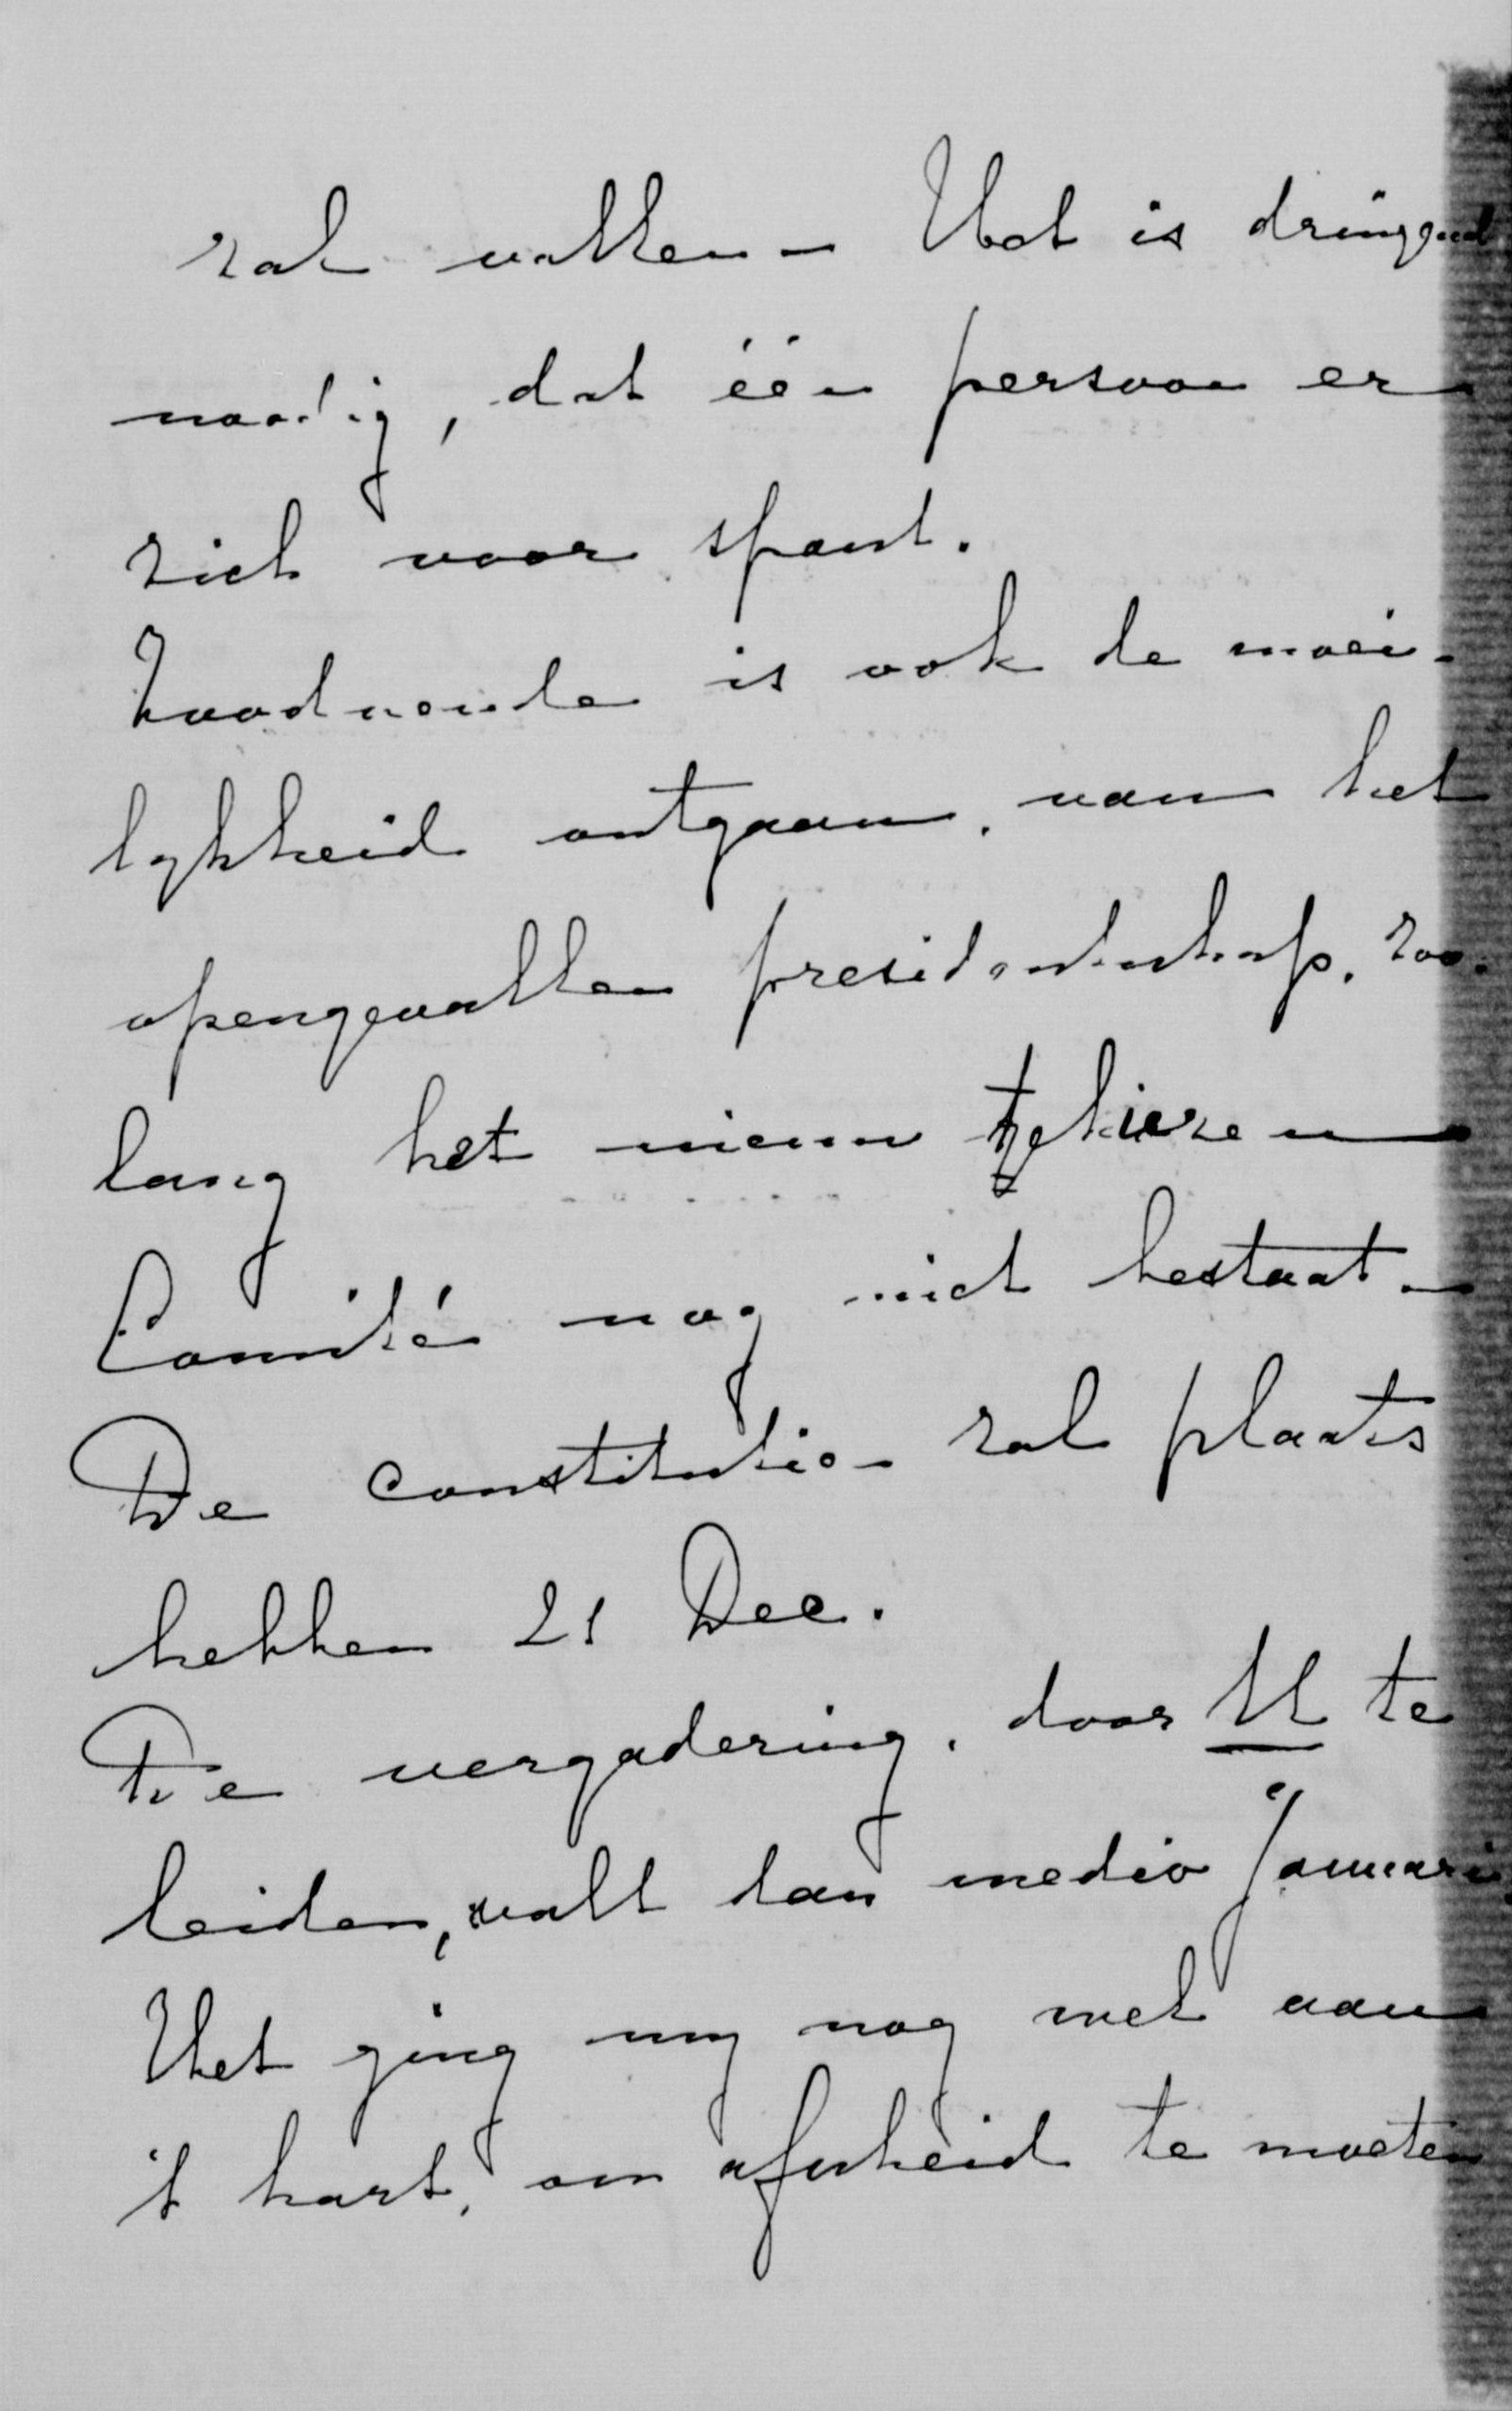 zal vallen – Het is dringend
noodig, dat één persoon er
zich voor spant.
Zoodoende is ook de moei-
lykheid ontgaan, van het
opengevallen presidentschap, zoo-
lang het nieuw te kiezen
Comité nog niet bestaat –
De constitutie zal plaats
hebben 21 Dec.
De vergadering, door U te
leiden, valt dan medio Januari
Het ging my nog met aan
't hart, om afscheid te moeten